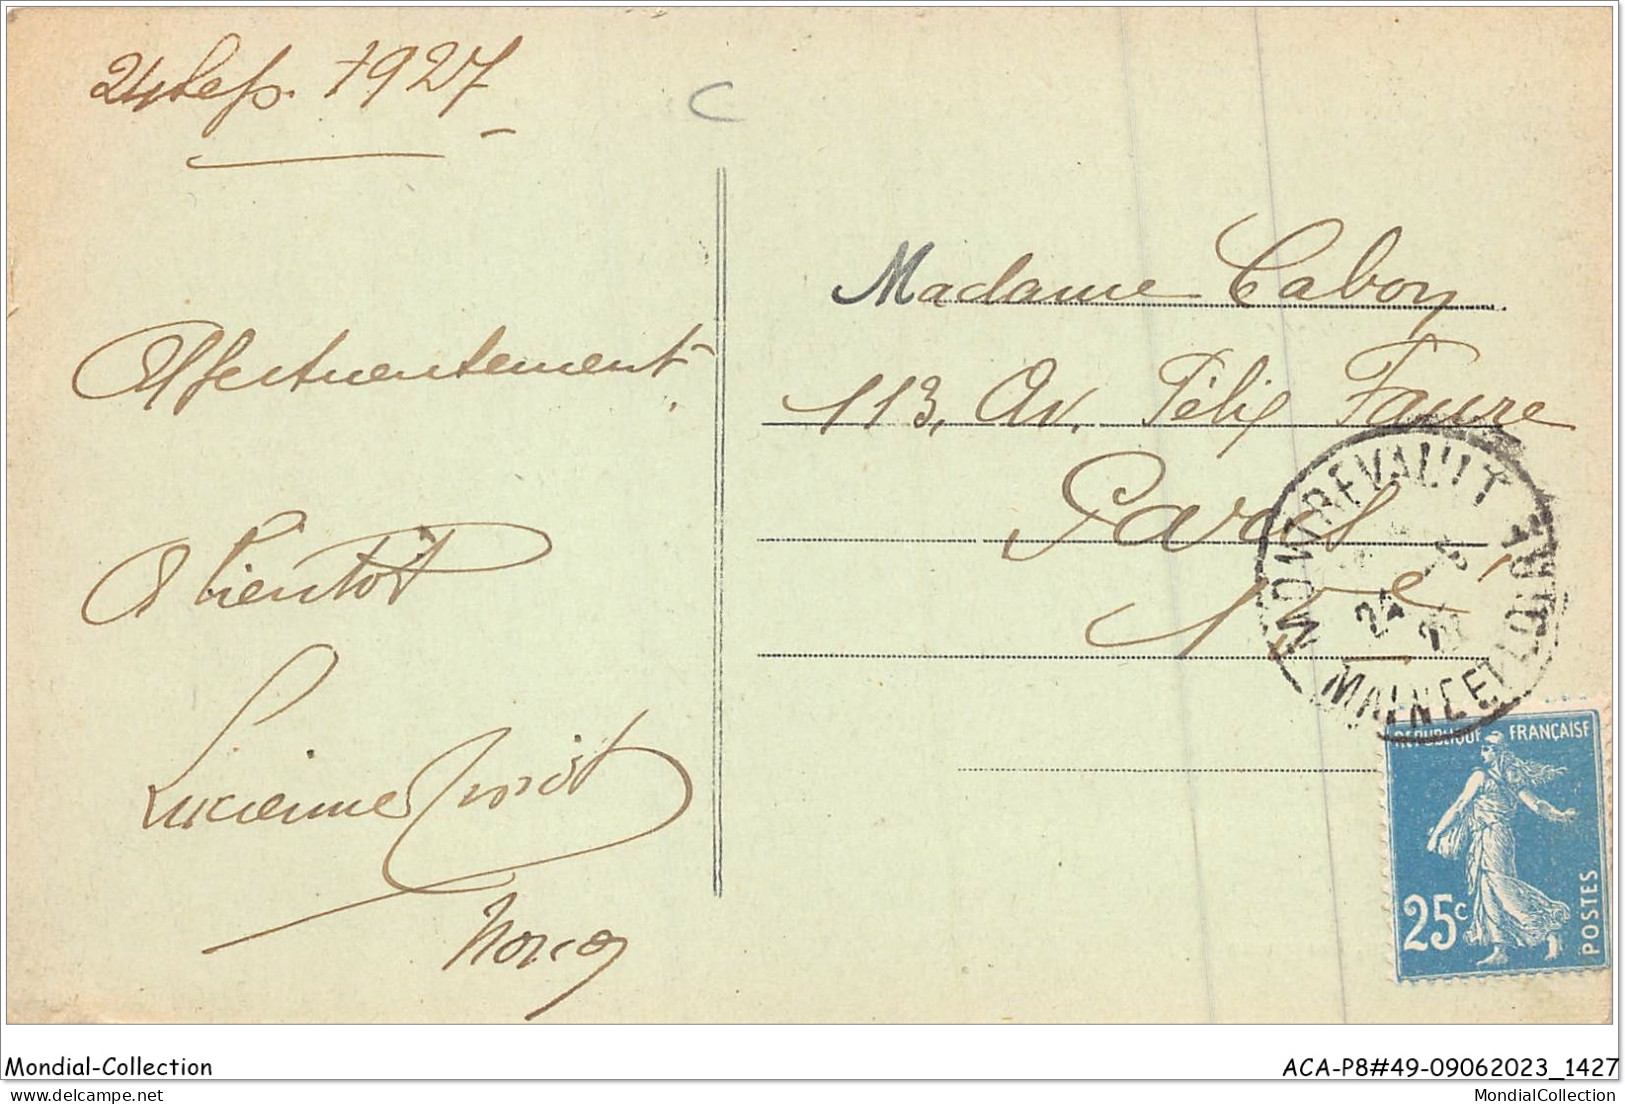 24 Sep. 1927
Affectueusement.
A bientôt
Lucienne
Madame Cabon
113, Av. Félix Faure
Paris
MONTREVAULT
24
MAINE ET LOIRE
REPUBLIQUE FRANÇAISE
25c
POSTES
Mondial-Collection
ACA-P8#49-09062023_1427
delcampe.net
MondialCollection